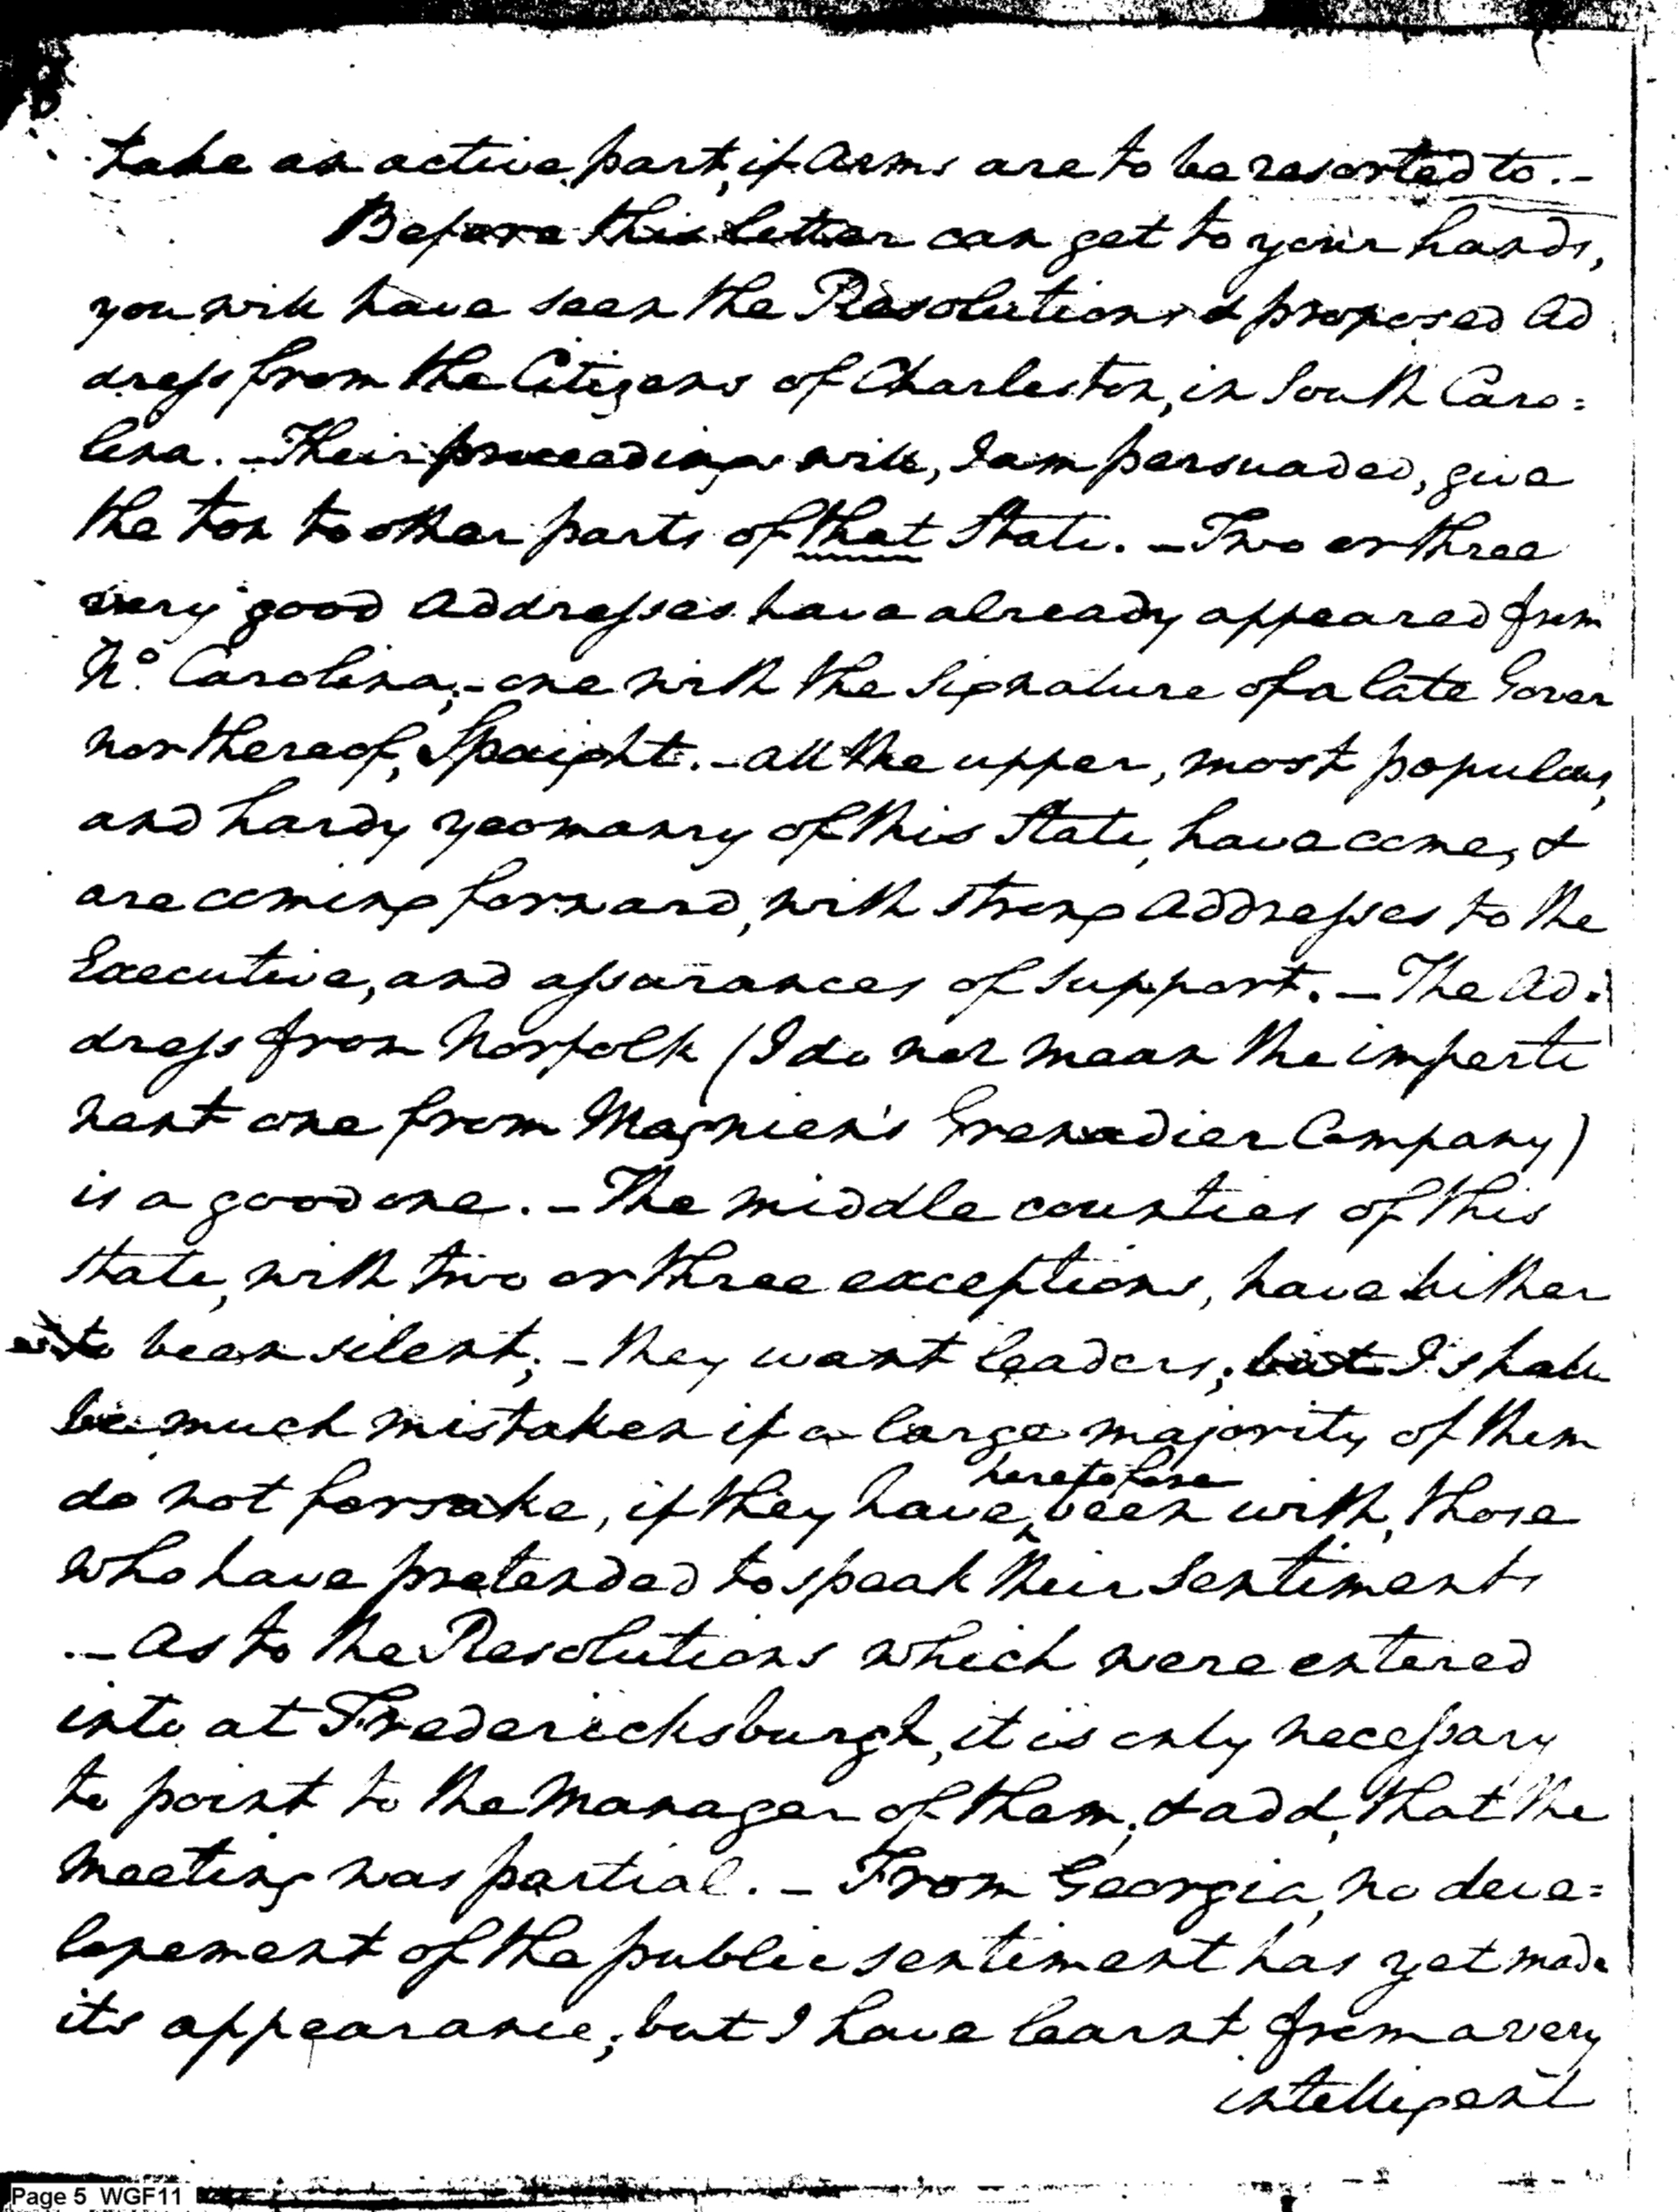 take an active part, if Arms are to be resorted to.-
Before this letter can get to your hands,
you will have seen the Resolutions & proposed Ad
dress from the Citizens of Charleston, in South Caro=
lina. - Their proceedings will, I am persuaded, give
the ton to other parts of that State. - Two or three
very good Addresses have already appeared from
No. Carolina; - one with the Signature of a late Gover
nor thereof, Spaight. - all the upper, most populous,
and hardy yeomanry of this State, have come, &
are coming forward, with strong Addresses to the
Executive, and assurances of Support. - The Ad.
dress from Norfolk (I do not mean the imperti
nent one from Magnien's Grenadier Company)
is a good one. - The middle counties of this
State, with two or three exceptions, have hither
to been silent; - they want leaders; but I shall
be much mistaken if a large majority of them
do not forsake, if they have heretofore been with, those
who have pretended to speak their Sentiments
. - As to the Resolutions which were entered
into at Fredericksburgh, it is only necessary
to point to the Manager of them; & add, that the
meeting was partial. - From Georgia, no deve=
lopement of the public sentiment has yet made
its appearance; but I have learnt from a very
intelligent
Page 5 WGF11